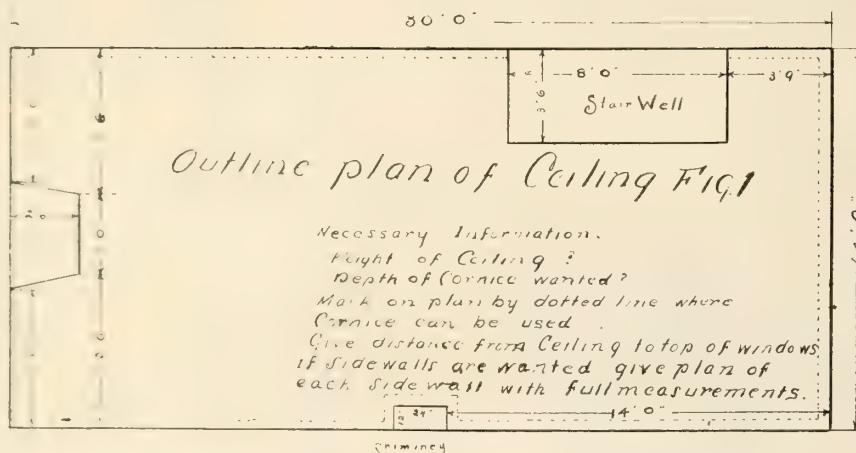 30'0"
8'0"
3'9"
3'6"
Stair Well
Outline plan of Ceiling Fig.1
Necessary Information.
Height of Ceiling ?
Depth of Cornice wanted?
Mark on plan by dotted line where
Cornice can be used.
Give distance from Ceiling to top of windows
if Sidewalls are wanted give plan of
each Sidewall with full measurements.
24"
14'0"
Chimney